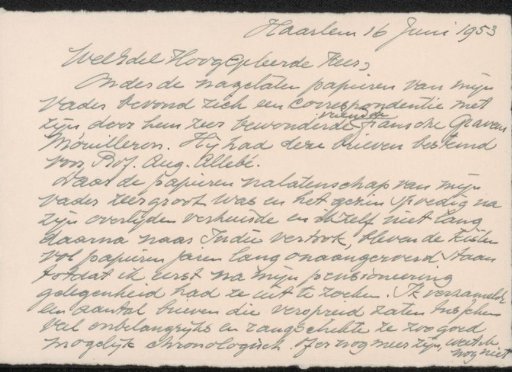 Haarlem 16 Juni 1953
WelEdel Hooggeleerde Heer,
Onder de nagelaten papieren van mijn
vader bevond zich een correspondentie met
zijn door hem zeer bewonderde vriend de fransche Graveur
Mouilleron. Hij had deze brieven bestemd
voor Prof. Aug. Allebé.
Daar de papieren nalatenschap van mijn
vader zeer groot was en het gezin spoedig na
zijn overlijden verhuisde en ik zelf niet lang
daarna naar Indië vertrok, bleven de kisten
vol papieren jaren lang onaangeroerd staan
totdat ik eerst na mijn pensioneering
gelegenheid had ze uit te zoeken. Ik verzamelde
een aantal brieven die verspreid zaten tusschen
veel onbelangrijks en rangschikte ze zoo goed
mogelijk chronologisch. Of er nog meer zijn, weet ik
nog niet